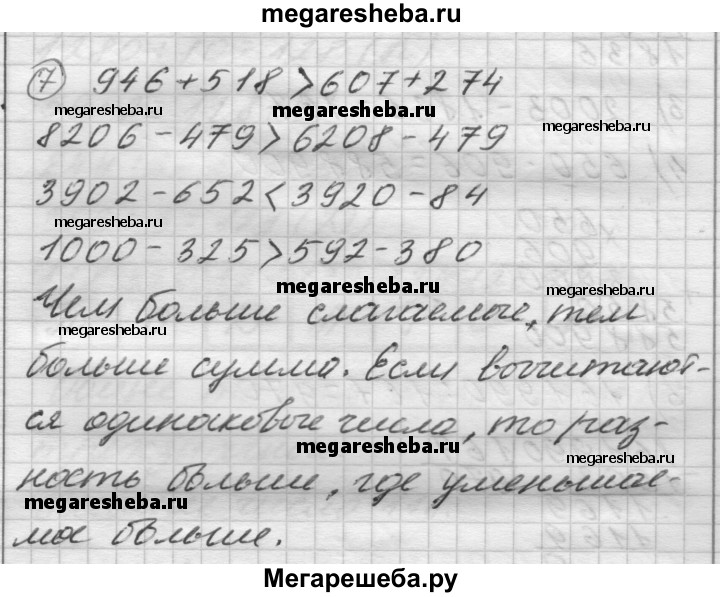 megaresheba.ru
7 946+518>607+274
megaresheba.ru megaresheba.ru megaresheba.ru
8206-479>6208-479
3902-652<3920-84
megaresheba.ru
1000-325>592-380
megaresheba.ru megaresheba.ru
Чем больше слагаемые, тем
megaresheba.ru
больше сумма. Если вычитают-
ся одинаковые числа, то раз-
megaresheba.ru megaresheba.ru
ность больше, где уменьшае-
megaresheba.ru
мое больше.
Мегарешеба.ру